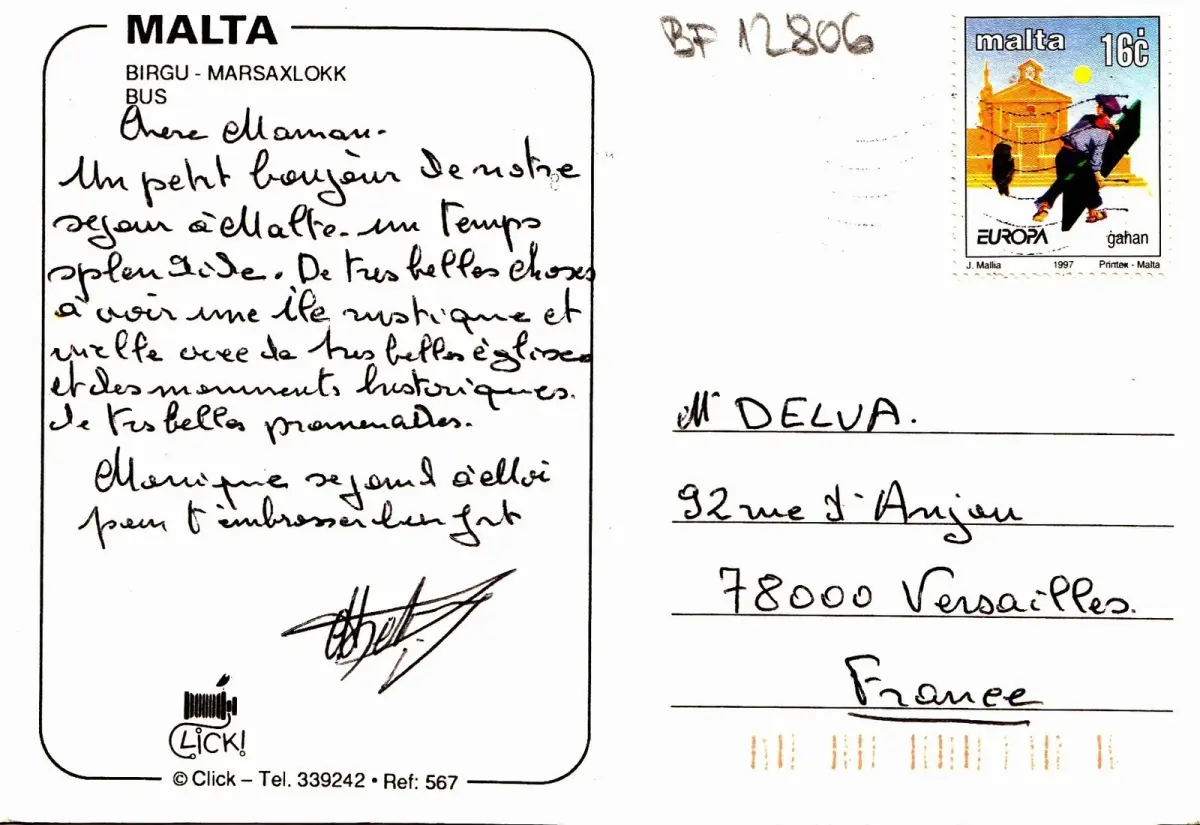 MALTA
BIRGU - MARSAXLOKK
BUS
Chere Maman.
Un petit bonjour de notre
sejour à Malte. un temps
splendide. De tres belles choses
à voir une île rustique et
avec de tres belles églises
et des monuments historiques.
de tres belles promenades.
Monique se joind à Moi
pour t'embrasser bien fort
CLiCK!
© Click – Tel. 339242 • Ref: 567
BF 12806
malta 16ċ
EUROPA ġaħan
J. Mallia 1997 Printex - Malta
Mr DELVA.
92 rue d'Anjou
78000 Versailles.
France